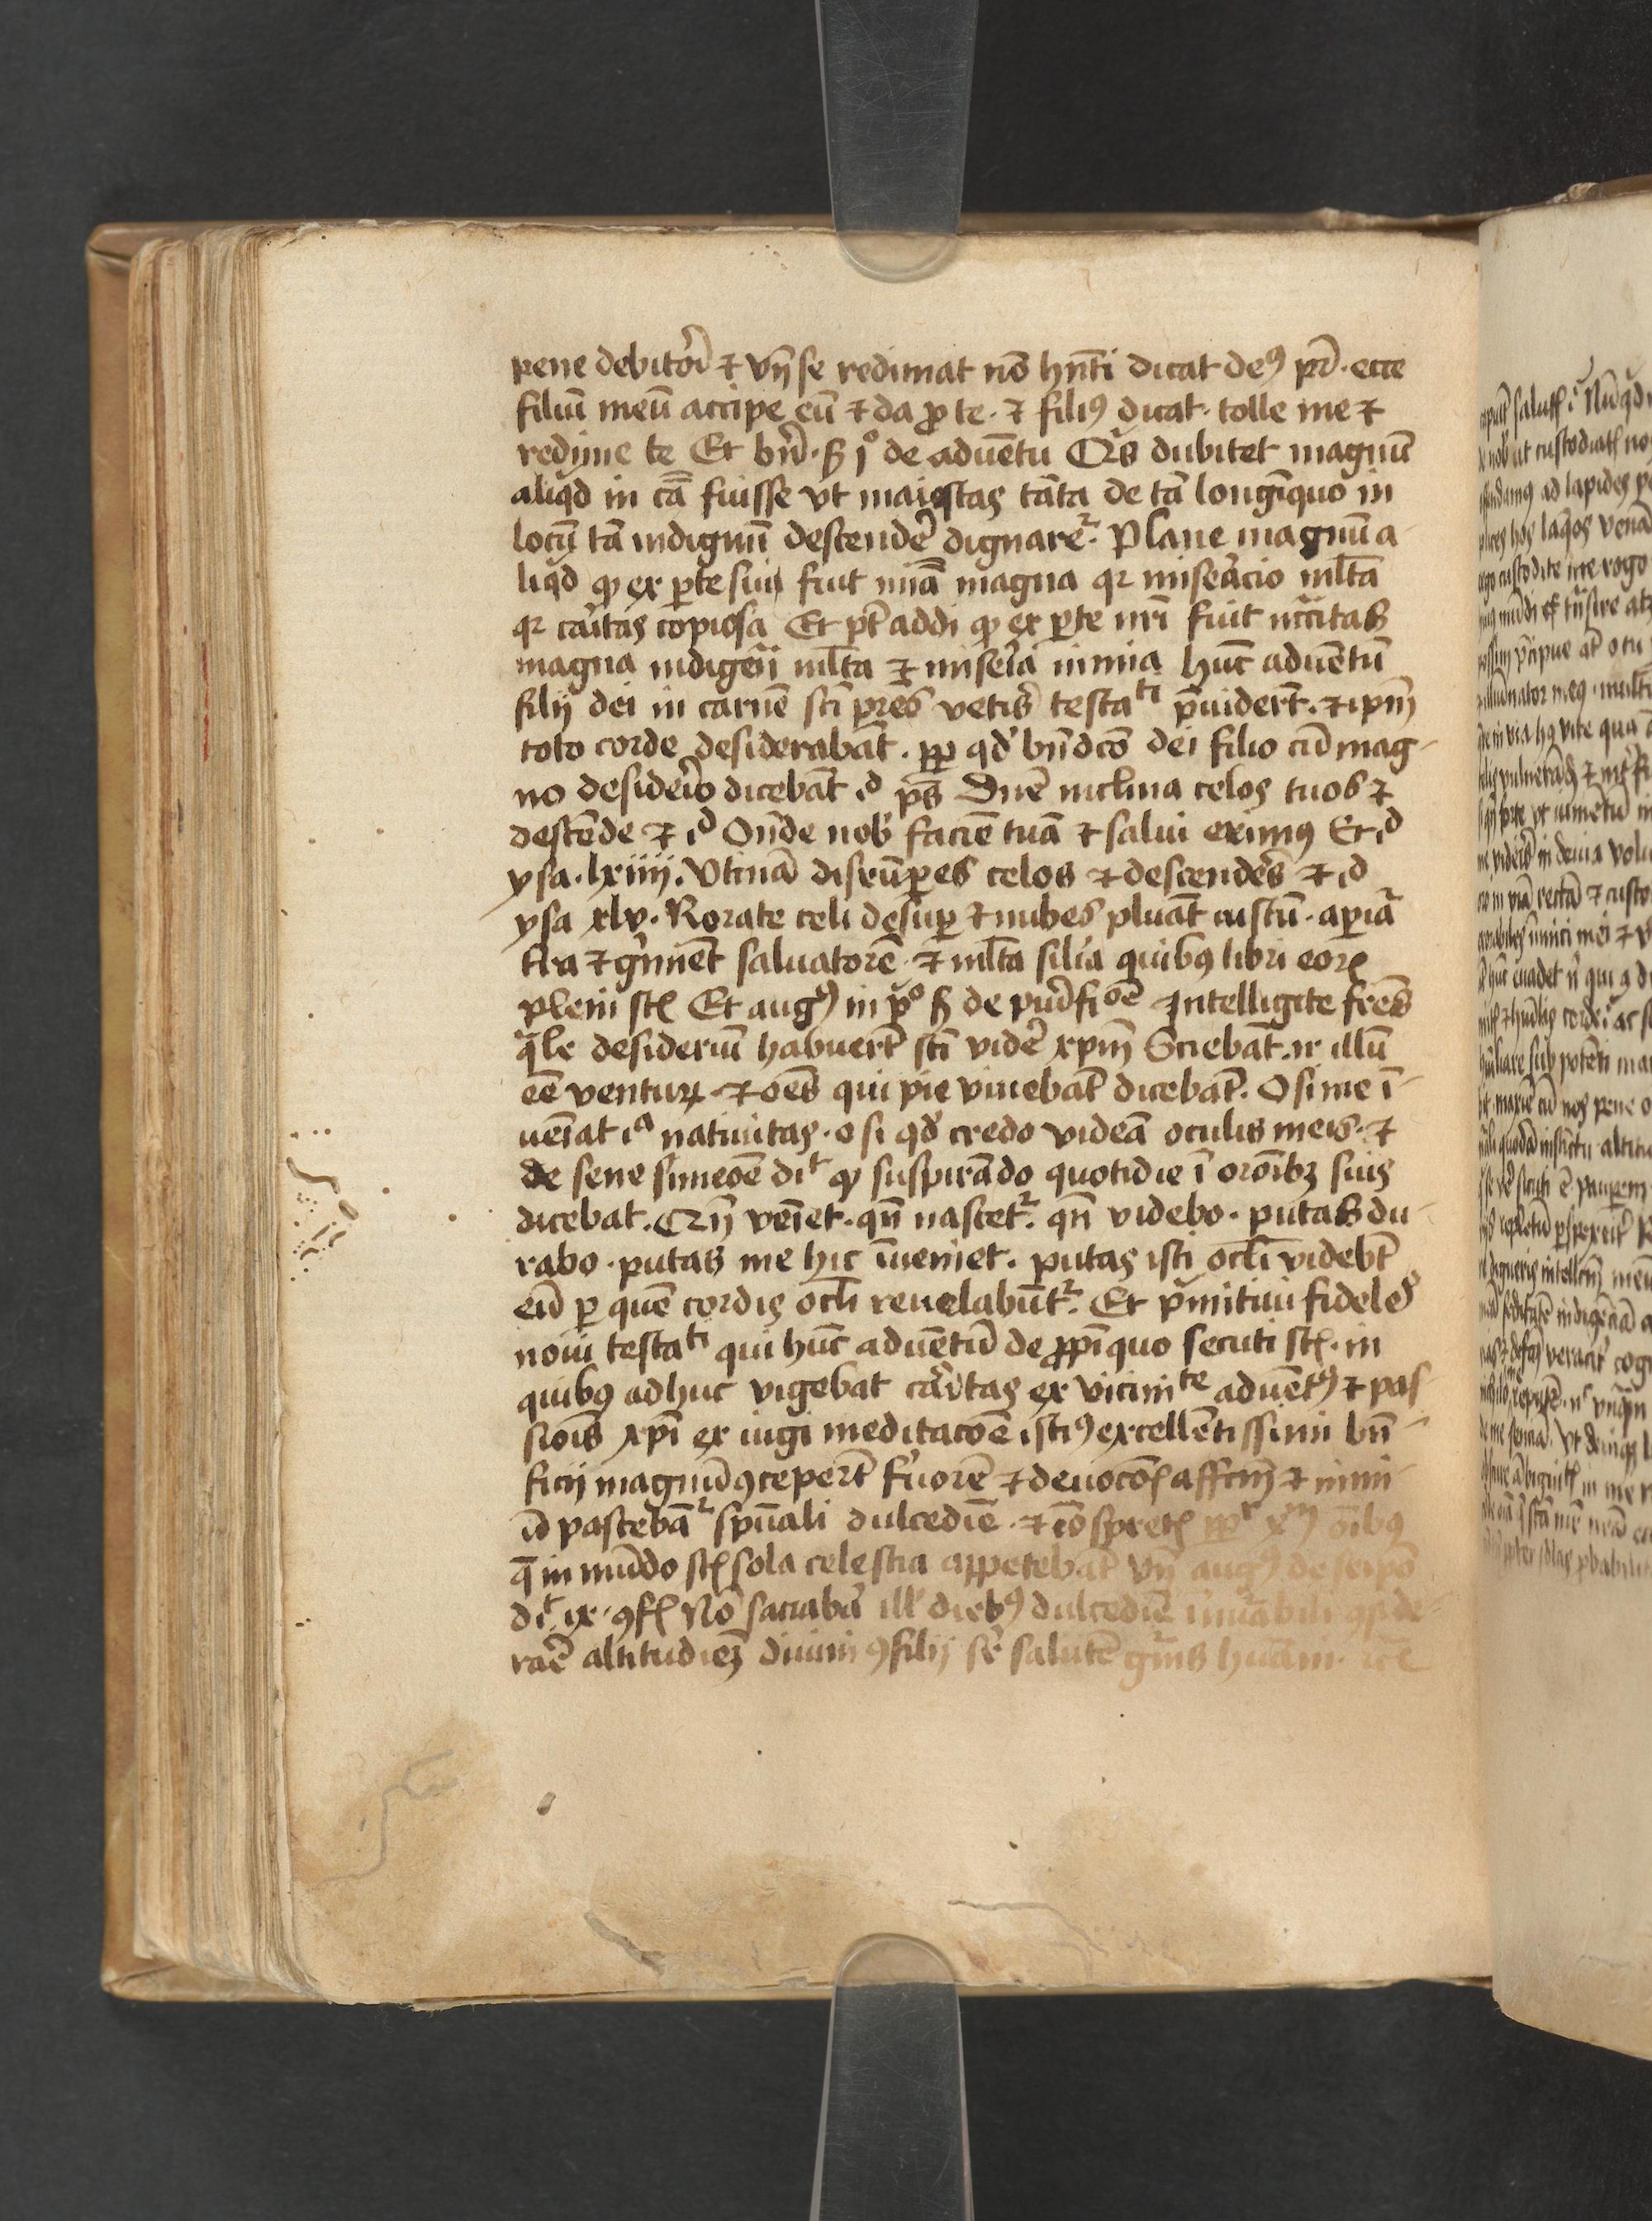 pene debitori ⁊ vn̄ se redimat nō hn̄ti dicat deꝰ pr̄ · ecce
filiū meū accipe eū ⁊ da ꝓ te · ⁊ filiꝰ dicat · tolle me ⁊
redyme te Et bn̄r̄ · ẜ jº de aduētu Qͥs dubitet magnū
aliqd in cā fuisse vt maiestas tāta de tā longīquo in
locū tā indignū descendē dignaret᷑ · Plane magnū a-
liqd ꝙ ex ꝑte sui fuit mīa magna qꝛ miseͣcio ml̄ta
qꝛ caͥtas copiosa Et pt̄ addi ꝙ ex ꝑte nr̄i fuit nc̄citas
magna indigen̄ ml̄ta ⁊ miseīa nimia hūc aduētū
filij dei in carnē sc̄i pr̄es vetis testaᵗⁱ p̄uidert̄ · ⁊ ip̄m
toto corde desiderabāt · ꝓp qd̓ bn̄dc̄o dei filio cū mag-
no desideīo dicebāt id p̄s Dn̄e inclina celos tuos ⁊
descēde ⁊ id On̄de nob̓ faciē tuā ⁊ salui erimꝰ Et id
ysa · lxiiij · Vtinā disrūꝑes celos ⁊ descendes ⁊ id
ysa xlv · Rorate celi desuꝑ ⁊ nubes pluāt iustū · aꝑiat᷑
t̓ra ⁊ g̓minet saluatorē · ⁊ ml̄ta sil̓ia quibꝰ libri eoꝝ
pleni st̄ Et augꝰ in pͥº ẜ de purifiᵒᵉ Intelligite fr̄es
qͣle desideriū habuert̄ sc̄i vidē xpm̄ Sciebāt · n̄ illū
eē ventuꝝ · ⁊ oēs qui pie viuebāt dicebāt · O si me ī-
ueīat iᵃ natiuitas · o si qd̓ credo videā oculis meis · ⁊
de sene simeōe diᵗ ꝙ suspirādo quotidie ī orōibꝫ suis
dicebat · Qn̄ veīet · qn̄ nascet᷑ · qn̄ videbo · putas du-
rabo · putas me hic īueniet · putas isti ocl̄i videbt̄
eū ꝑ quē cordis ocl̄i reuelabūt᷑ · Et pͥmitiui fideles
noui testaᵗⁱ qui hūc aduētū de ꝓpīquo secuti st̄ · in
quibꝰ adhuc vigebat caͥtas ex viciniᵗᵉ aduētꝰ ⁊ pas-
siōis xp̄i ex iugi meditacōe istiꝰ excellētissimi bn̄-
ficij magnū ꝯcepert̄ f̓uorē ⁊ deuocōꝭ affc̄m ⁊ nimi-
ū pascebāt᷑ sp̄uali dulcedīe · ⁊ oībꝰ
q̄ in mūdo st̄ sola celestia appetebāt vn̄ augꝰ de seip̄o
diᵗ · ix · ꝯf̄ Nō saciabar ill̓ diebꝰ dulcedīe mirabili ꝯside-
raē altitudīeꝫ diuini ꝯsilij sr̄ salutē gn̄is huāni ·